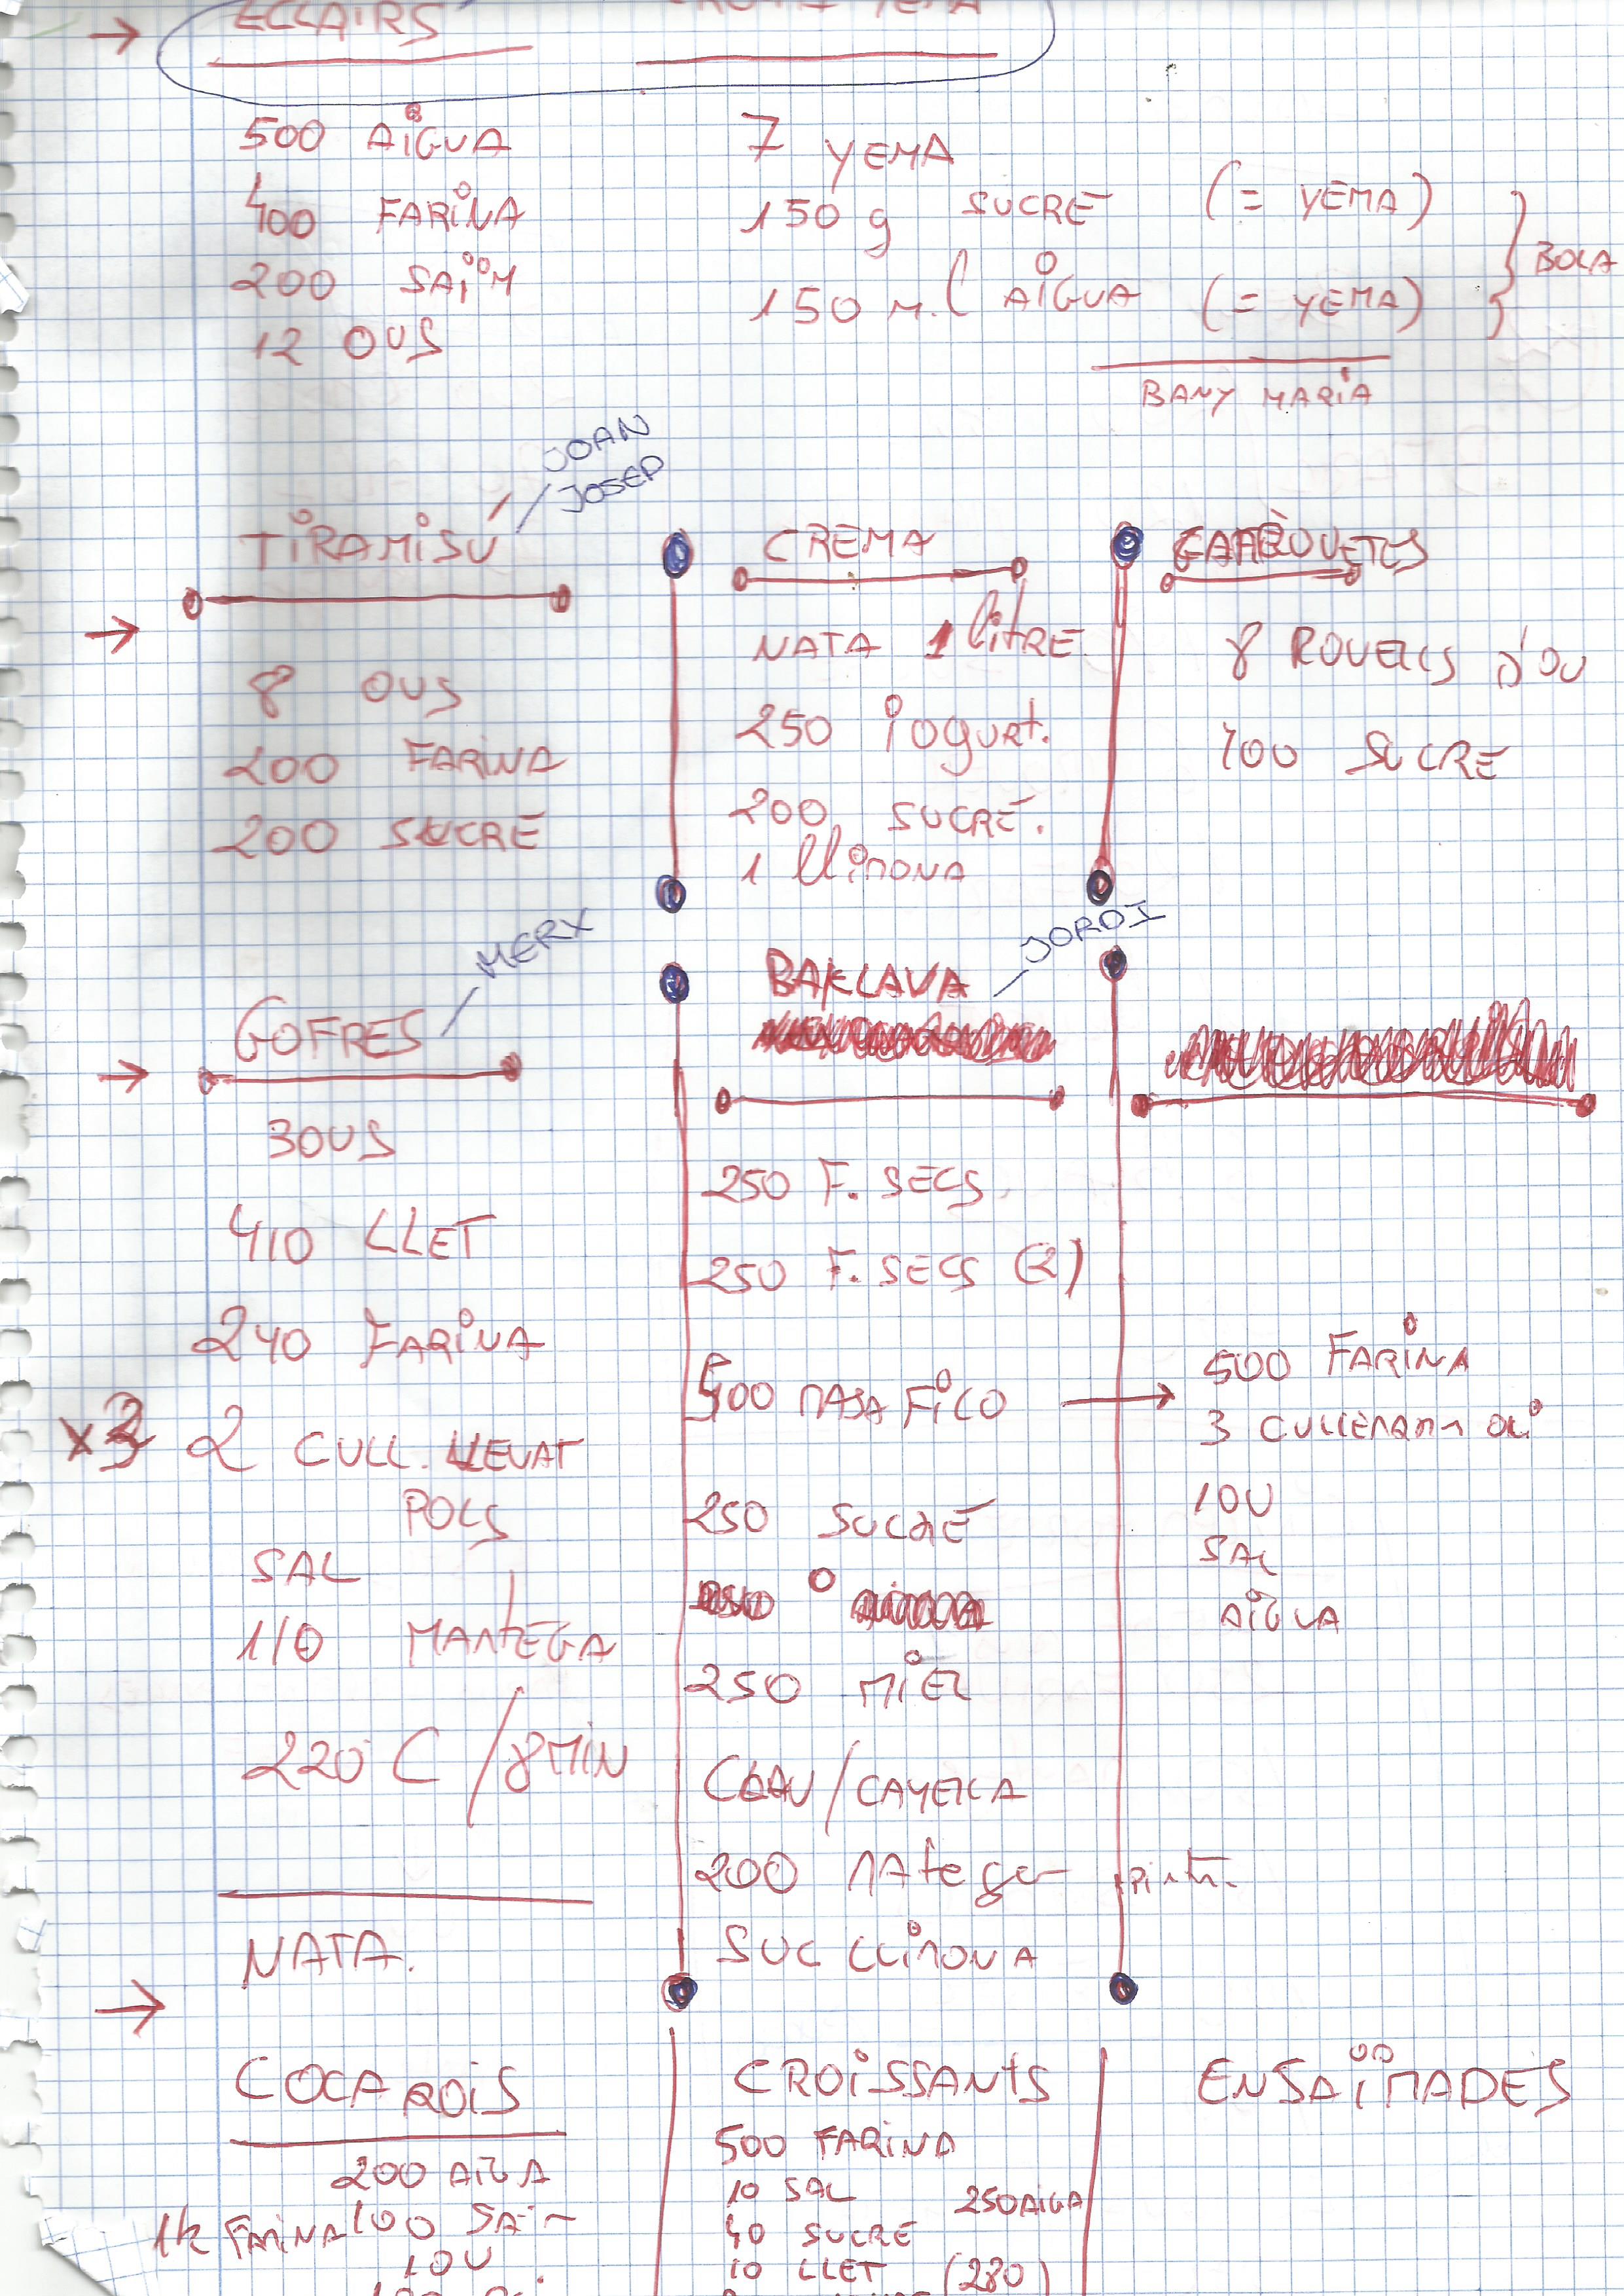 ECLAIRS
YEMA
500 AIGUA
400 FARINA
200 SAÏM
12 OUS
7 YEMA
150 g SUCRE (= YEMA)
150 M.L AIGUA (= YEMA)
BOLA
BANY MARIA
TIRAMISÚ
JOAN
JOSEP
8 OUS
200 FARINA
200 SUCRE
CREMA
NATA 1 litRE
250 iogurt.
200 SUCRE.
1 llimona
8 ROVELLS D'OU
400 SUCRE
GOFRES
MERX
3 OUS
410 LLET
240 FARINA
x3
2 CULL. LLEVAT
POLS
SAL
110 MANTEGA
220 C / 8 MIN
NATA.
BAKLAVA
JORDI
250 F. SECS
250 F. SECS (2)
500 MASA FILO
250 SUCRE
250 MIEL
CLAU/CANELLA
200 MATEGA
SUC LLIMONA
500 FARINA
3 CULLERADES OLI
1 OU
SAL
AIGUA
COCA ROIS
200 AIGA
1k FARINA 100 SAIM
1 OU
CROISSANTS
500 FARINA
10 SAL 250 AIGA
40 SUCRE
10 LLET (280)
ENSAÏMADES